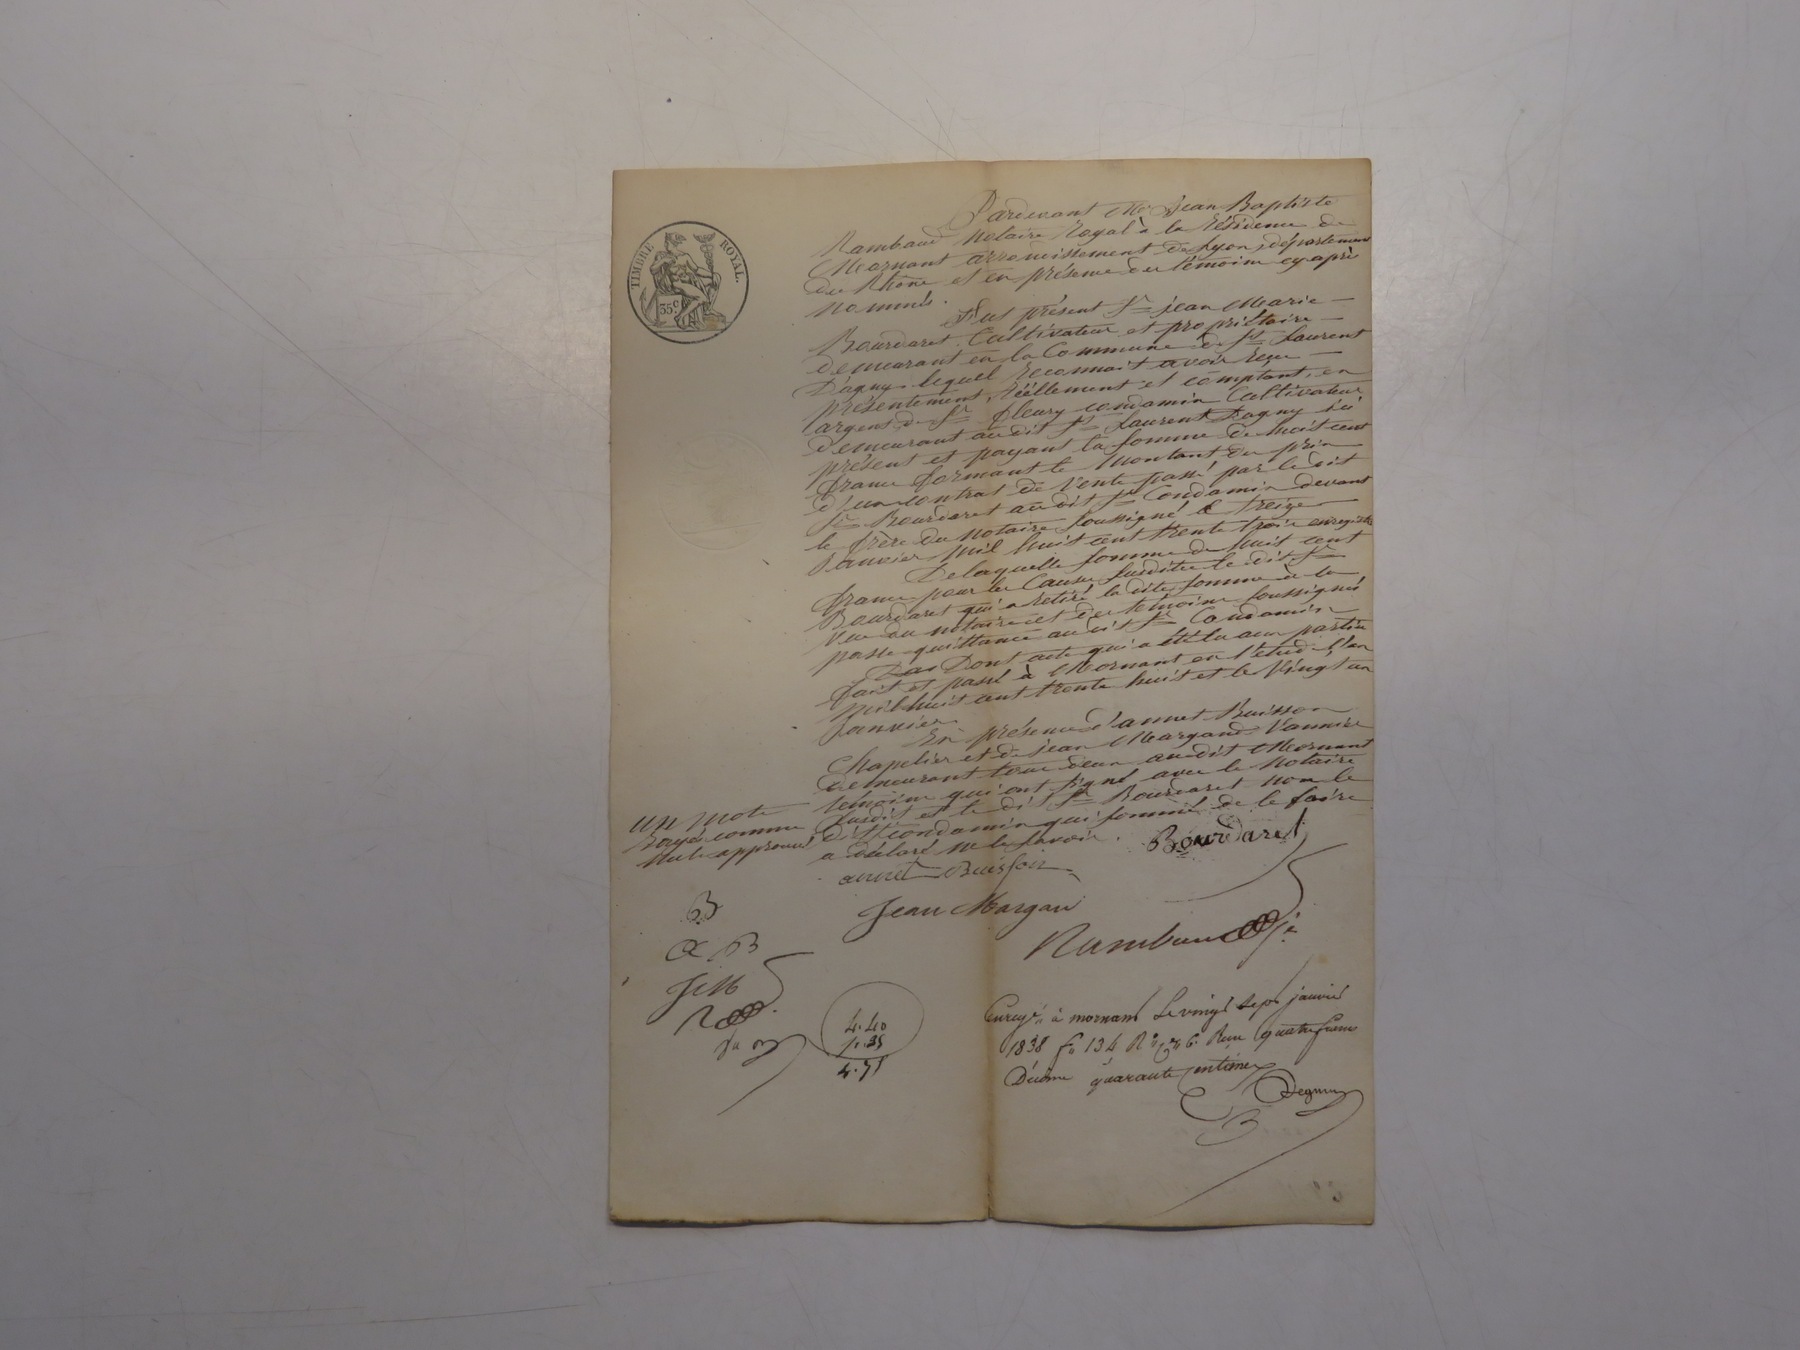 TIMBRE ROYAL.
35c
Pardevant Me Jean Baptiste
Rambaud Notaire Royal à la Résidence de
Mornant arrondissement de Lyon, département
du Rhône et en présence des témoins cy après
nommés.
Fut présent Sr jean Marie
Bourdaret Cultivateur et propriétaire
demeurant en la Commune de St Laurent
D'agny. lequel reconnait avoir reçu
présentement, réellement et comptant, en
argent, de Sr fleury condamin Cultivateur
demeurant audit St Laurent Dagny ici
présent et payant la somme de huit cent
franc formant le montant du prix
d'un contrat de vente passé par le dit
Sr Bourdaret audit Sr Condamin devant
le frère du notaire soussigné le treize
Janvier mil huit cent trente trois enregistré
De laquelle somme de huit cent
franc pour les Causes susdites le dit Sr
Bourdaret qui a retiré la dite somme à la
vue du notaire et des témoins soussignés
passe quittance audit Sr Condamin
Dont acte qui a été lu aux parties
fait et passé à Mornant en l'étude l'an
mil huit cent trente huit et le vingt un
Janvier
En présence d'annet Buisson
Chapelier et de jean Margand Vannier
demeurant tous deux audit Mornant
témoins qui ont signé avec le Notaire
susdit et le dit Sr Bourdaret non le
dit Condamin qui sommé de le faire
a déclaré ne le savoir.
un mot
Rayé comme
nul approuvé
Bourdaret
annet Buisson
Jean Margan
Rambaud
B
a B
J M
R
4.40
4.75
Enregé à mornant Le vingt sept janvier
1838 fo 134 Ro Reçu quatre francs
Décime quarante centimes